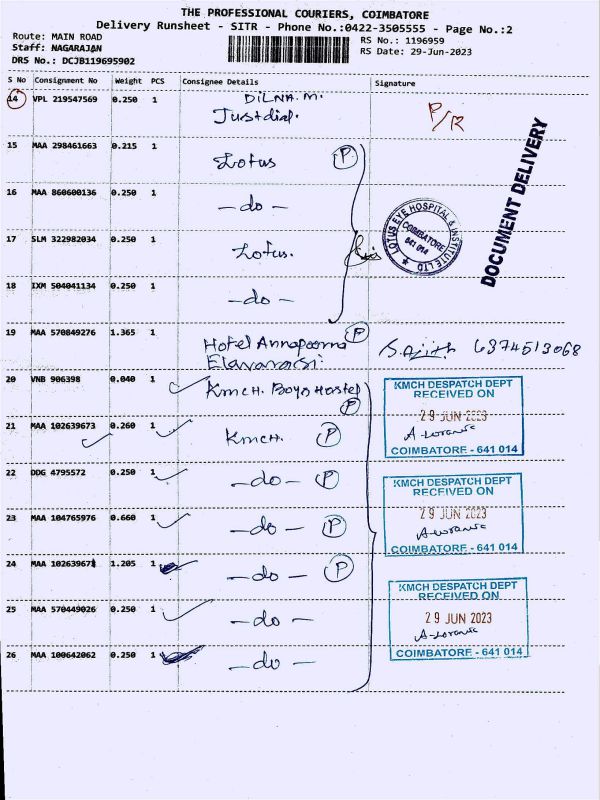 THE PROFESSIONAL COURIERS, COIMBATORE
Delivery Runsheet - SITR - Phone No.:0422-3505555 - Page No.:2
Route: MAIN ROAD
RS No.: 1196959
Staff: NAGARAJAN
RS Date: 29-Jun-2023
DRS No.: DCJB119695902
S No Consignment No Weight PCS Consignee Details Signature
14 VPL 219547569 0.250 1 DILNA.M. P/R
Justdial.
15 MAA 298461663 0.215 1 Lotus P
16 MAA 860600136 0.250 1 -do-
LOTUS EYE HOSPITAL & INSTITUTE LTD
COIMBATORE
641 014
DOCUMENT DELIVERY
17 SLM 322982034 0.250 1 Lotus.
18 IXM 504041134 0.250 1 -do-
19 MAA 570849276 1.365 1 Hotel Annapoorna P S.Ajith 6374513068
Elavarasi
20 VNB 906398 0.040 1 KMCH. Boys Hostel P
KMCH DESPATCH DEPT
RECEIVED ON
29 JUN 2023
COIMBATORE - 641 014
21 MAA 102639673 0.260 1 KMCH. P
22 DDG 4795572 0.250 1 -do- P
KMCH DESPATCH DEPT
RECEIVED ON
29 JUN 2023
COIMBATORE - 641 014
23 MAA 104765976 0.660 1 -do- P
24 MAA 102639671 1.205 1 -do- P
25 MAA 570449026 0.250 1 -do-
KMCH DESPATCH DEPT
RECEIVED ON
29 JUN 2023
COIMBATORE - 641 014
26 MAA 100642062 0.250 1 -do-